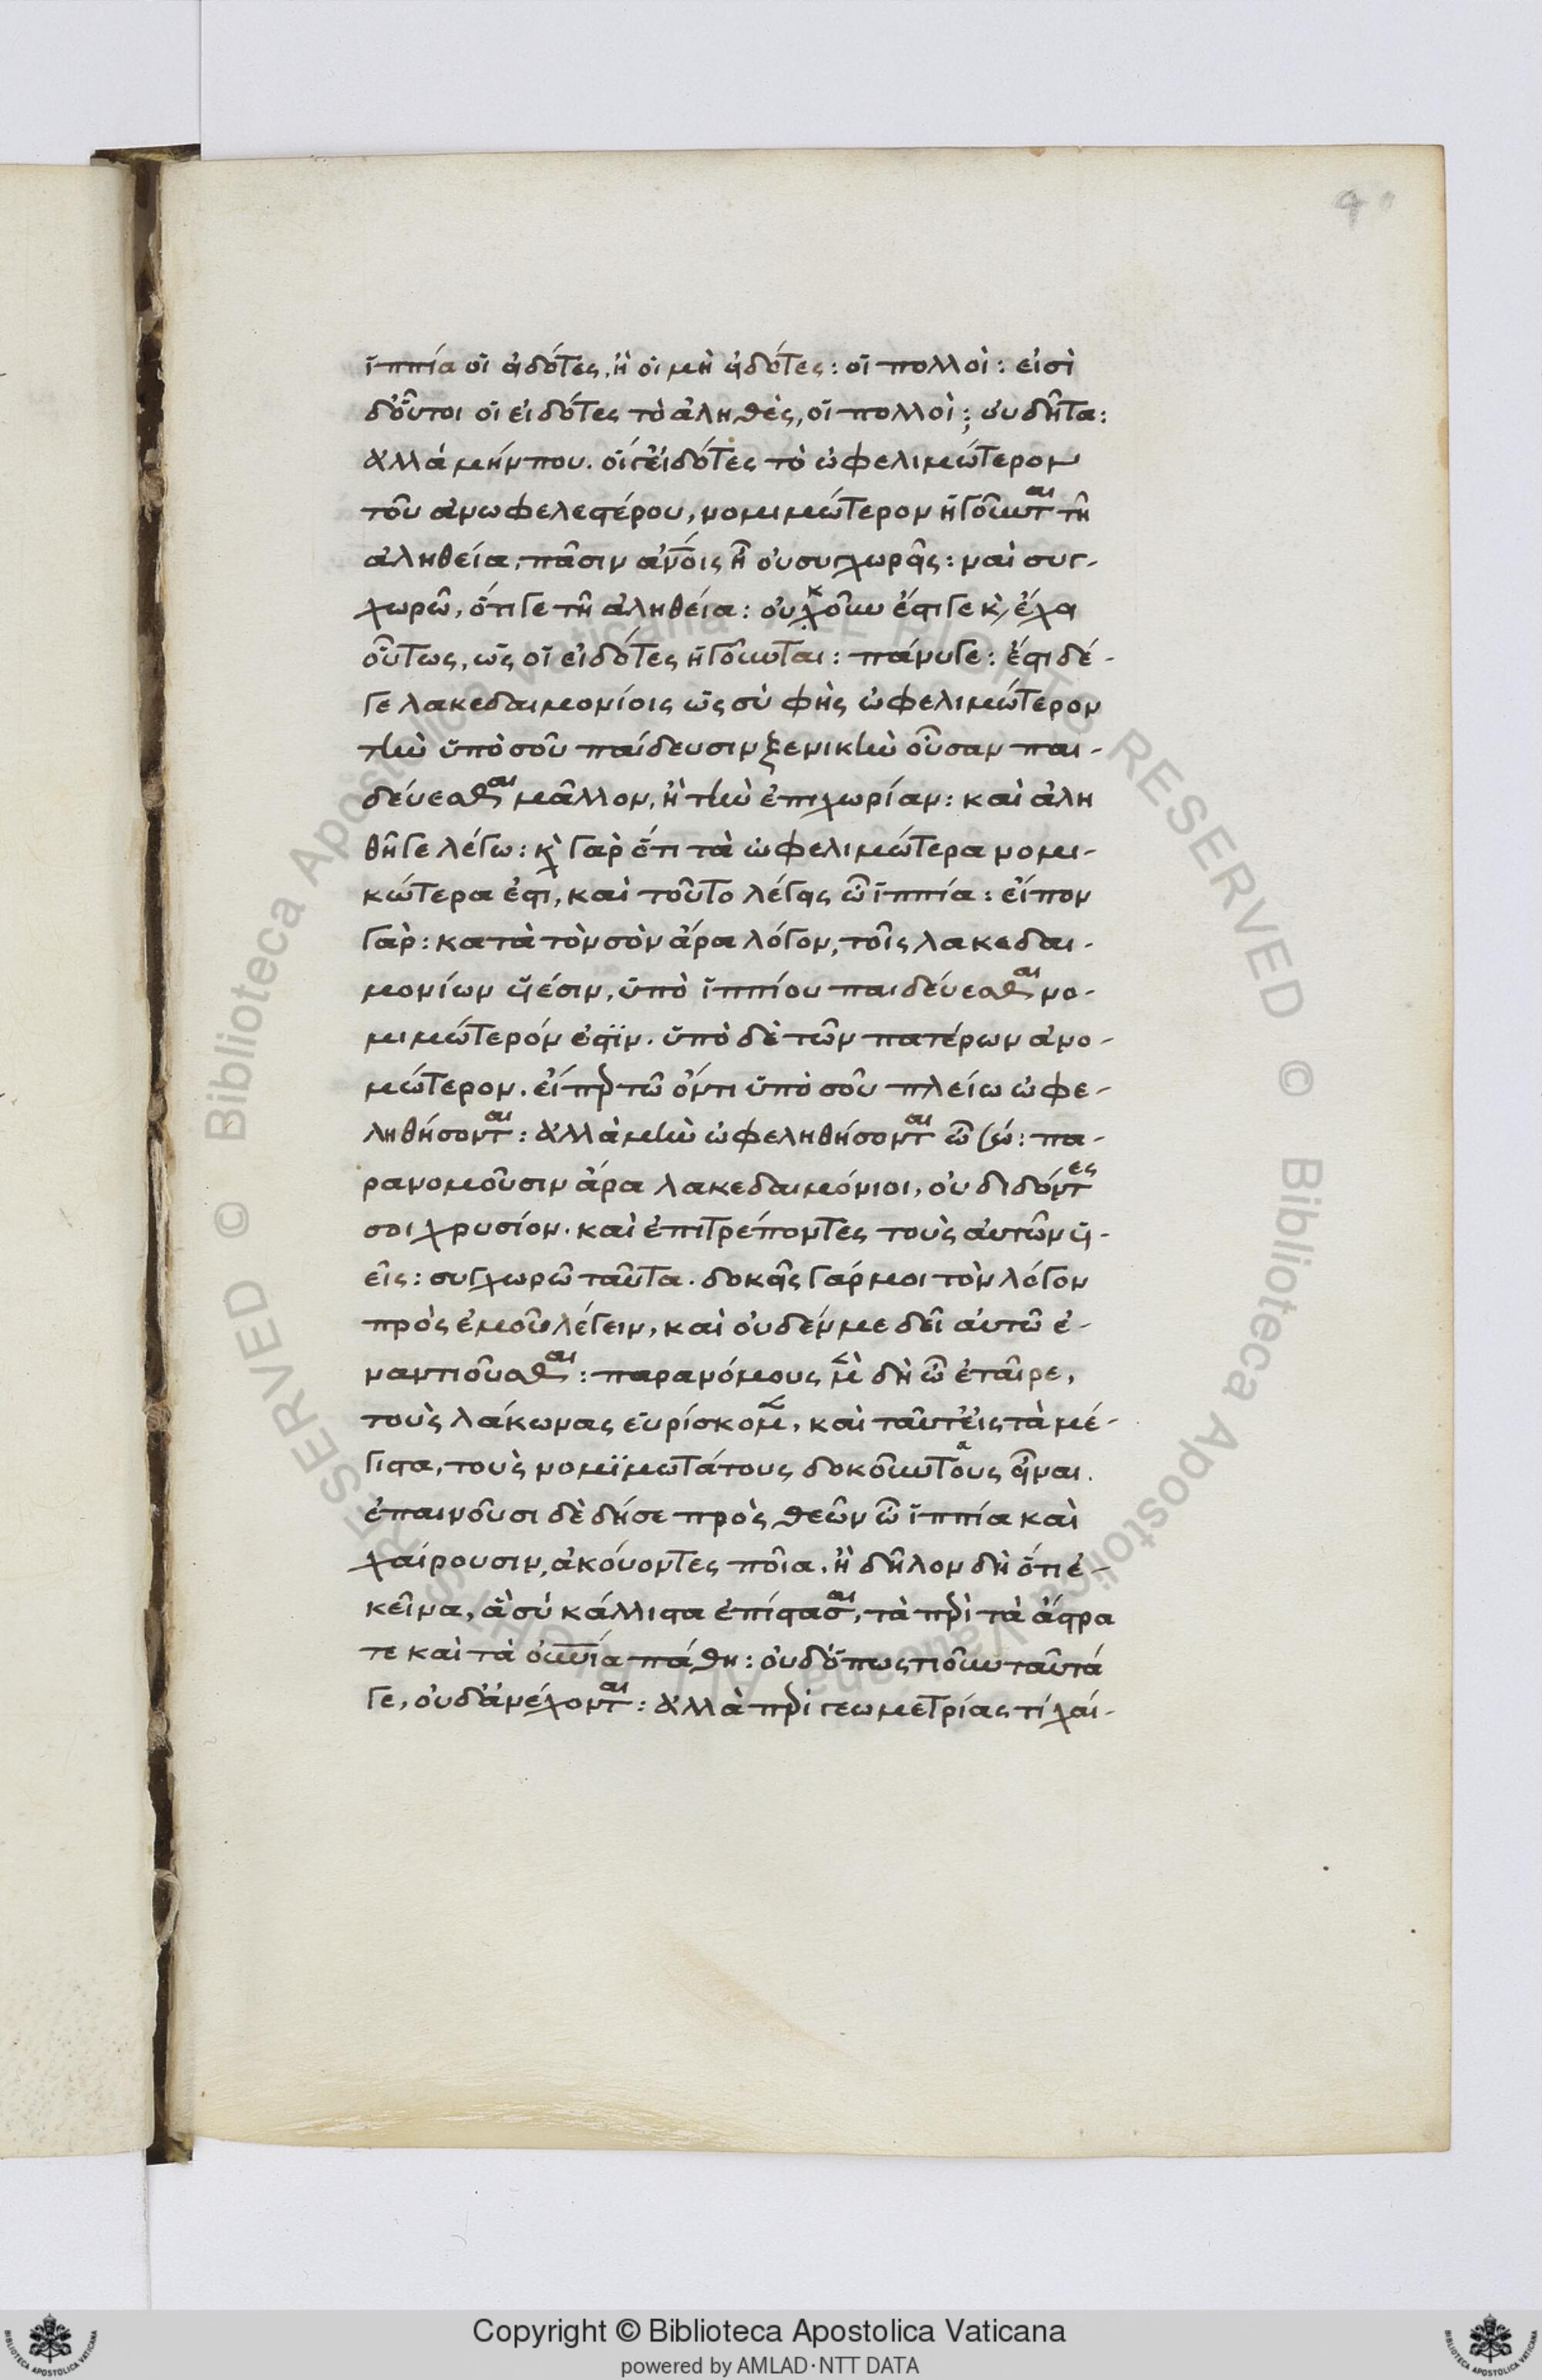 4
ἵππία οἱ εἰδότες, ἢ οἱ μὴ εἰδότες: οἱ πολλοὶ: εἰσὶ
δ' οὗτοι οἱ εἰδότες τὸ ἀληθὲς, οἱ πολλοὶ; οὐ δῆτα:
ἀλλά μήν που. οἵ γ' εἰδότες τὸ ὠφελιμώτερον
τοῦ ἀνωφελεστέρου, νομιμώτερον ἡγοῦνται τῆ
ἀληθεία, πᾶσιν ἀνοις ἢ οὐ συγχωρεῖς: ναὶ συγ-
χωρῶ, ὅτι γε τῆ ἀληθεία: οὐκοῦν ἔστι γε κ, ἔχει
οὕτως, ὡς οἱ εἰδότες ἡγοῦνται: πάνυ γε: ἔστι δέ-
γε λακεδαιμονίοις ὡς σὺ φὴς ὠφελιμώτερον
τὴν ὑπὸ σοῦ παίδευσιν ξενικὴν οὖσαν παι-
δεύεσθαι μᾶλλον, ἢ τὴν ἐπιχωρίαν: καὶ ἀλη
θῆ γε λέγω: κ γὰρ ὅτι τὰ ὠφελιμώτερα νομι-
κώτερα ἐστι, καὶ τοῦτο λέγεις ὦ ἱππία: εἶπον
γὰρ: κατὰ τὸν σὸν ἄρα λόγον, τοῖς λακεδαι-
μονίων ὑέσιν, ὑπὸ ἱππίου παιδεύεσθαι νο-
μιμώτερόν ἐστϊν. ὑπὸ δὲ τῶν πατέρων ἀνο-
μώτερον. εἴπερ τῶ ὄντι ὑπὸ σοῦ πλείω ὠφε-
ληθήσονται: ἀλλὰ μὴν ὠφεληθήσονται ὦ σώ: πα-
ρανομοῦσιν ἄρα λακεδαιμόνιοι, οὐ διδόντες
σοι χρυσίον. καὶ ἐπιτρέποντες τοὺς αὐτῶν ὑ-
εῖς: συγχωρῶ ταῦτα. δοκεῖς γάρ μοι τὸν λόγον
πρὸς ἐμοῦ λέγειν, καὶ οὐδέν με δεῖ αὐτῶ ἐ-
ναντιοῦσθαι: παρανόμους μὲν δὴ ὦ ἑταῖρε,
τοὺς λάκωνας εὑρίσκομεν, καὶ ταῦτ' εἰς τὰ μέ-
γιστα, τοὺς νομϊμωτάτους δοκοῦντας εἶναι.
ἐπαινοῦσι δὲ δή σε πρὸς θεῶν ὦ ἱππία καὶ
χαίρουσιν, ἀκούοντες ποῖα, ἢ δῆλον δὴ ὅτι ἐ-
κεῖνα, ἃ σὺ κάλλιστα ἐπίστασαι, τὰ περὶ τὰ ἄστρα
τε καὶ τὰ οὐνια πάθη: οὐδ' ὅπως τι οῦν ταῦτά
γε, οὐδ' ἀνέχονται: ἀλλὰ περὶ γεωμετρίας τί χαί-
Copyright © Biblioteca Apostolica Vaticana
powered by AMLAD·NTT DATA